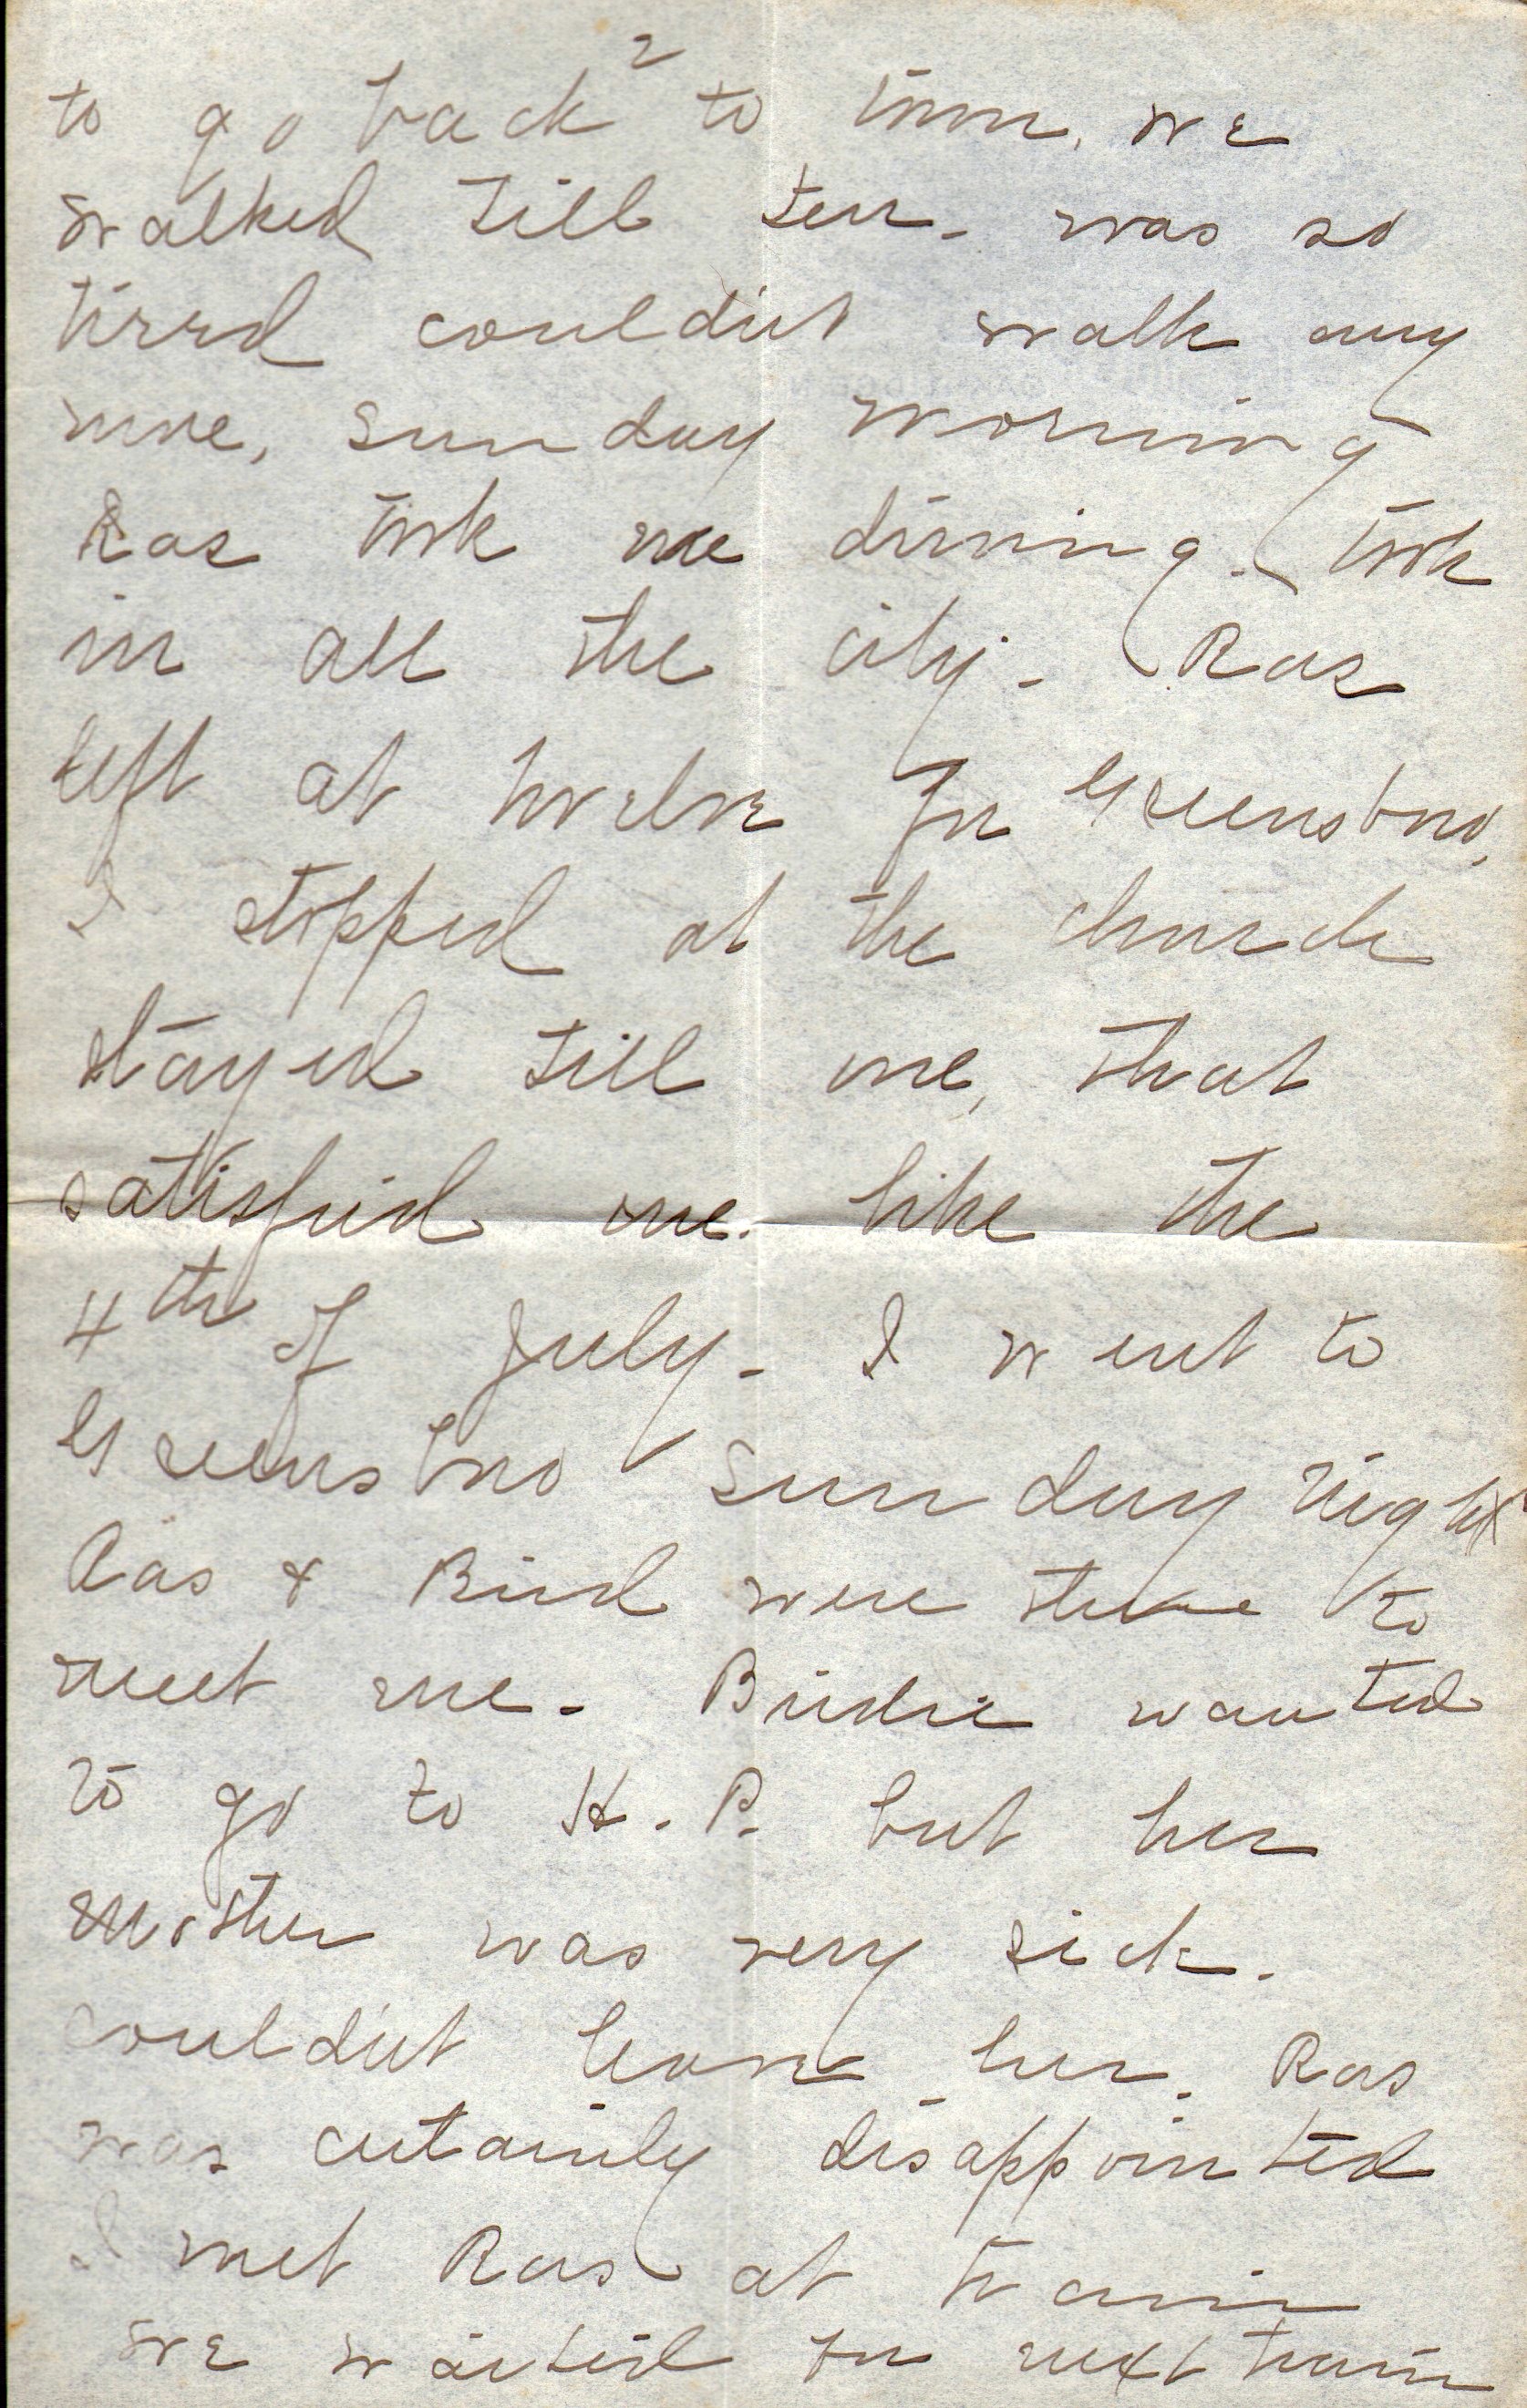 2
to go back to town. we
walked till ten - was so
tired couldn't walk any
more, Sunday morning
Ras took me driving. took
in all the city - Ras
left at twelve for Greensboro,
I stopped at the church
stayed till one, that
satisfied me. like the
4th of July - I went to
Greensboro Sunday night
Ras & Bird were there to
meet me - Birdie wanted
to go to H. P. but her
mother was very sick.
couldn't leave her. Ras
was certainly disappointed
I met Ras at train
we waited for next train